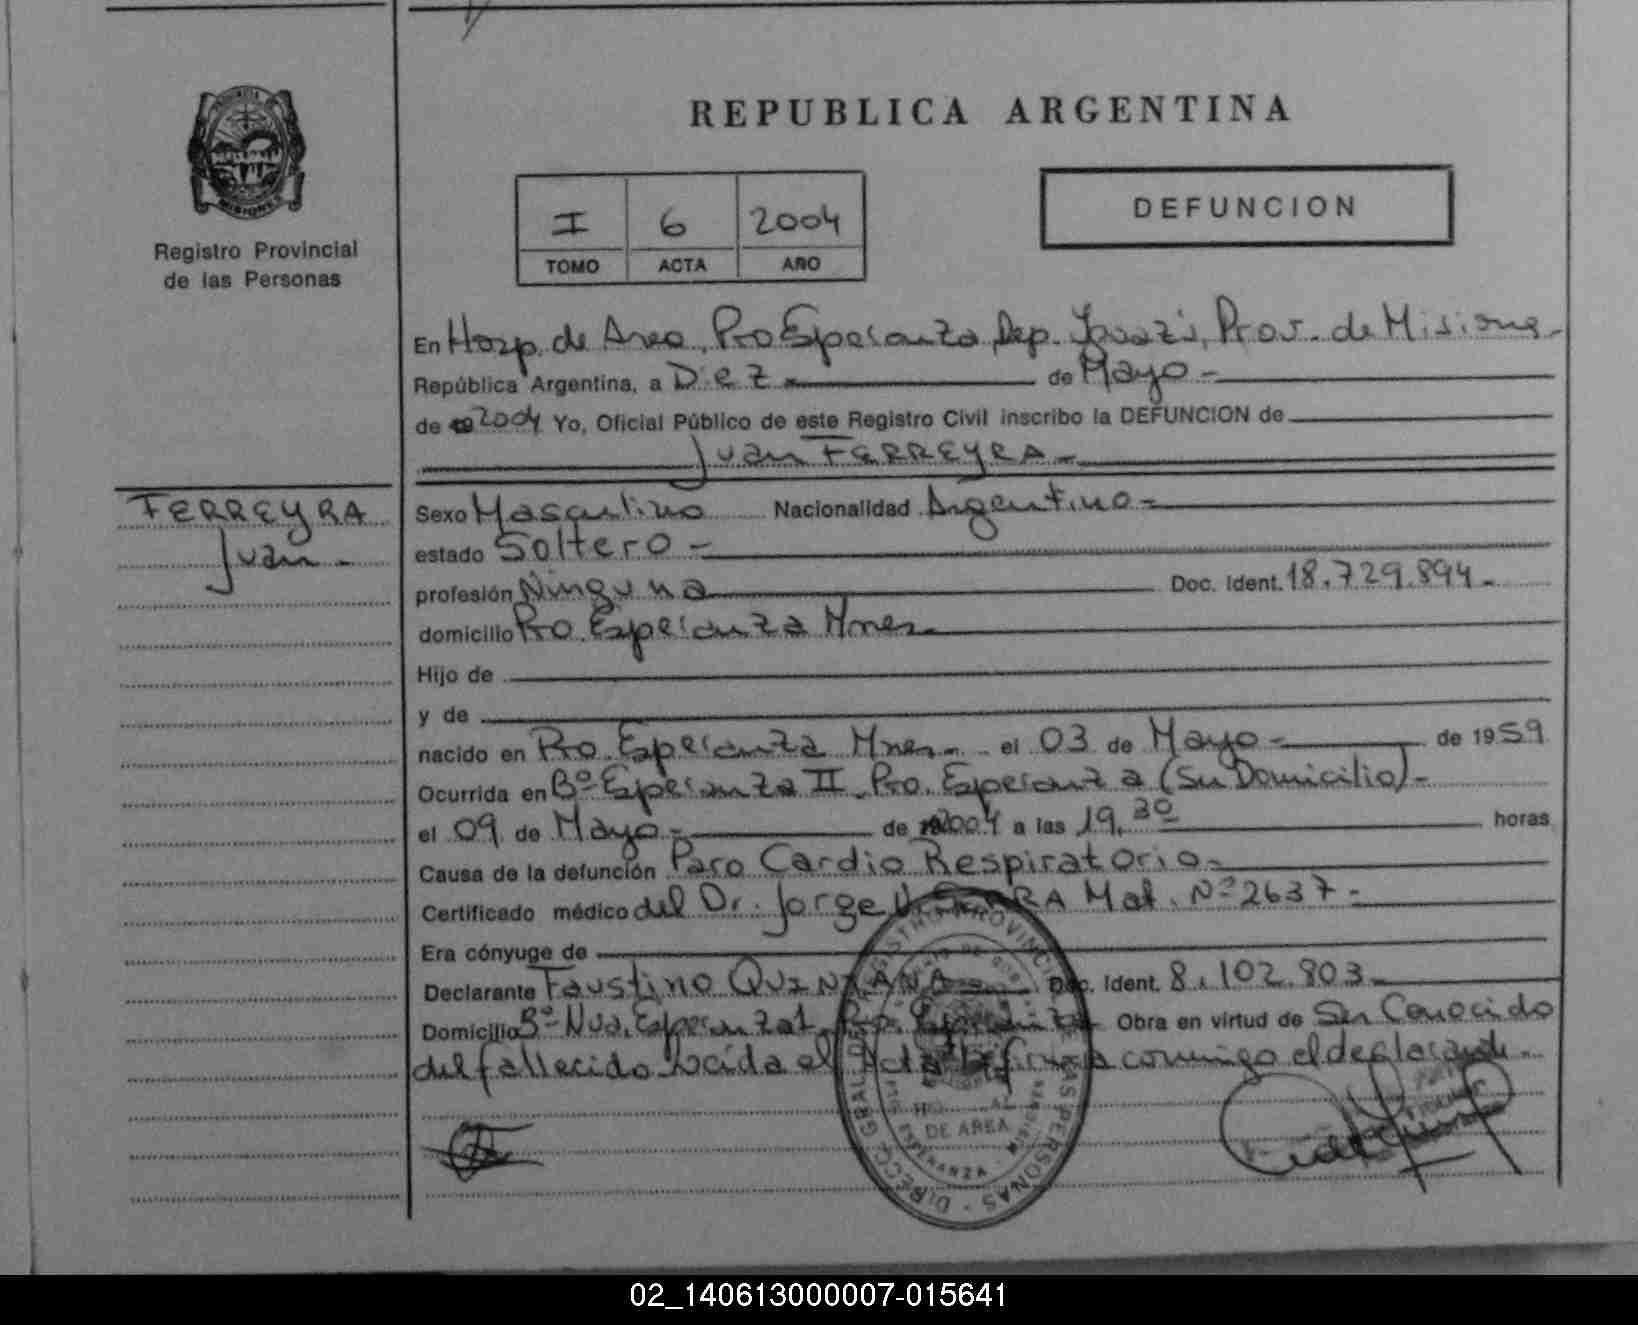 REPUBLICA ARGENTINA
PROVINCIA DE
MISIONES
Registro Provincial
de las Personas
I 6 2004
TOMO ACTA AÑO
DEFUNCION
En Hosp. de Area, Pto Esperanza, Dep. Iguazú, Prov. de Misiones.-
República Argentina, a Diez.- de Mayo.-
de 2004 Yo, Oficial Público de este Registro Civil inscribo la DEFUNCION de
Juan FERREYRA.-
FERREYRA
Juan.-
Sexo Masculino Nacionalidad Argentino.-
estado Soltero.-
profesión Ninguna Doc. Ident. 18.729.894.-
domicilio Pto. Esperanza Mnes.-
Hijo de
y de
nacido en Pto. Esperanza Mnes.- el 03 de Mayo.- de 1959
Ocurrida en Bº Esperanza II. Pto. Esperanza (Su Domicilio).-
el 09 de Mayo.- de 2004 a las 19,30 horas
Causa de la defunción Paro Cardio Respiratorio.-
Certificado médico del Dr. Jorge Mat. Nº 2637.-
Era cónyuge de
Declarante Faustino QUINTANA Doc. Ident. 8.102.803.-
Domicilio Bº Nva. Esperanza Pto. Esperanza Obra en virtud de Ser Conocido
del fallecido Leída el Acta la firma conmigo el declarante.-
DE AREA
02_140613000007-015641